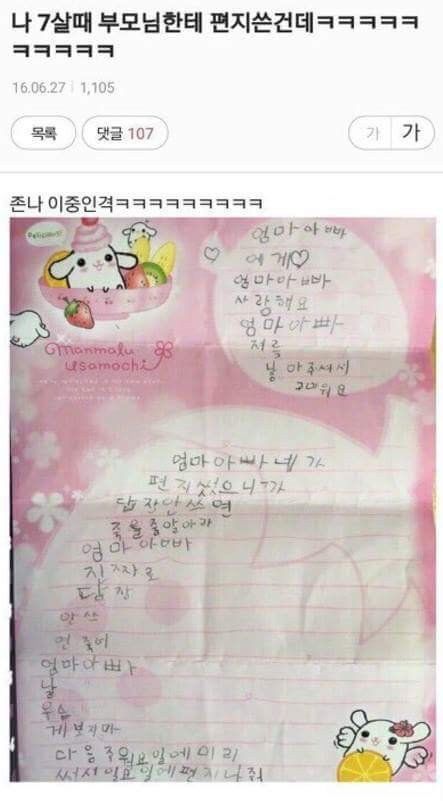 나 7살때 부모님한테 편지쓴건데ㅋㅋㅋㅋㅋ
ㅋㅋㅋㅋㅋ
16.06.27 1,105
목록 댓글 107 가 가
존나 이중인격ㅋㅋㅋㅋㅋㅋㅋㅋㅋ
Delicious!
엄마아빠
에게♡
엄마아빠
사랑해요
엄마아빠
저를
낳아주셔서
고마워요
manmalu
usamochi
엄마아빠 내가
편지썼으니까
답장안쓰면
죽을줄알아라
엄마아빠
진짜로
답장
안쓰
면 죽어
엄마아빠
날
우습
게보지마
다음주 월요일에미리
써서일요일에편지나줘